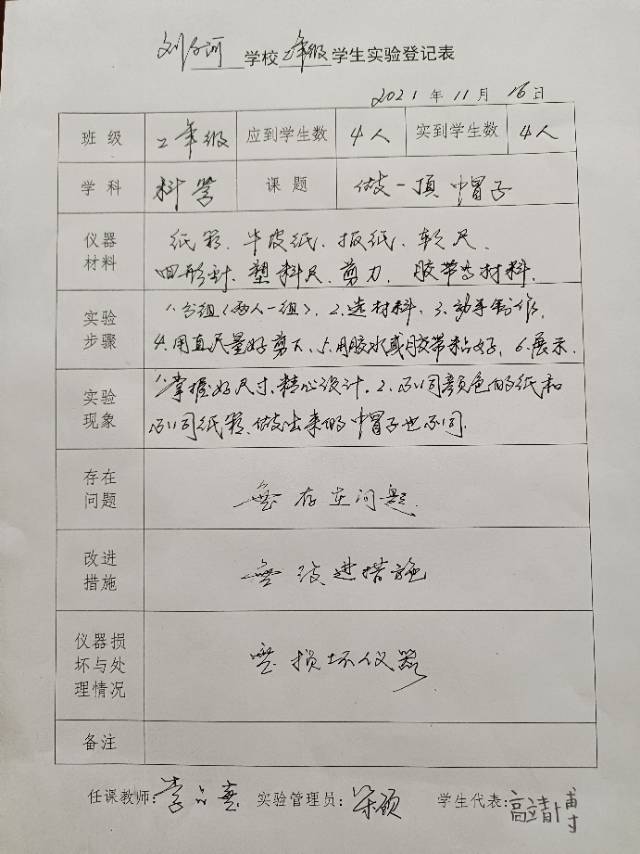 刘 河 学校二年级学生实验登记表
2021 年 11 月 16 日
班 级 二年级 应到学生数 4人 实到学生数 4人
学 科 科学 课 题 做一顶帽子
仪器材料 纸 牛皮纸、报纸、软尺、
回形针、塑料尺、剪刀、胶带等材料.
实验步骤 1.分组(两人一组)、2.选材料、3.动手制作、
4.用直尺量好剪下、5.用胶水或胶带粘好、6.展示.
实验现象 1.掌握好尺寸、精心设计、2.不同颜色的纸和
不同纸 做出来的帽子也不同.
存在问题 無存在问题.
改进措施 無改进措施
仪器损坏与处理情况 無损坏仪器
备注
任课教师: 李 实验管理员: 学生代表: 高靖博